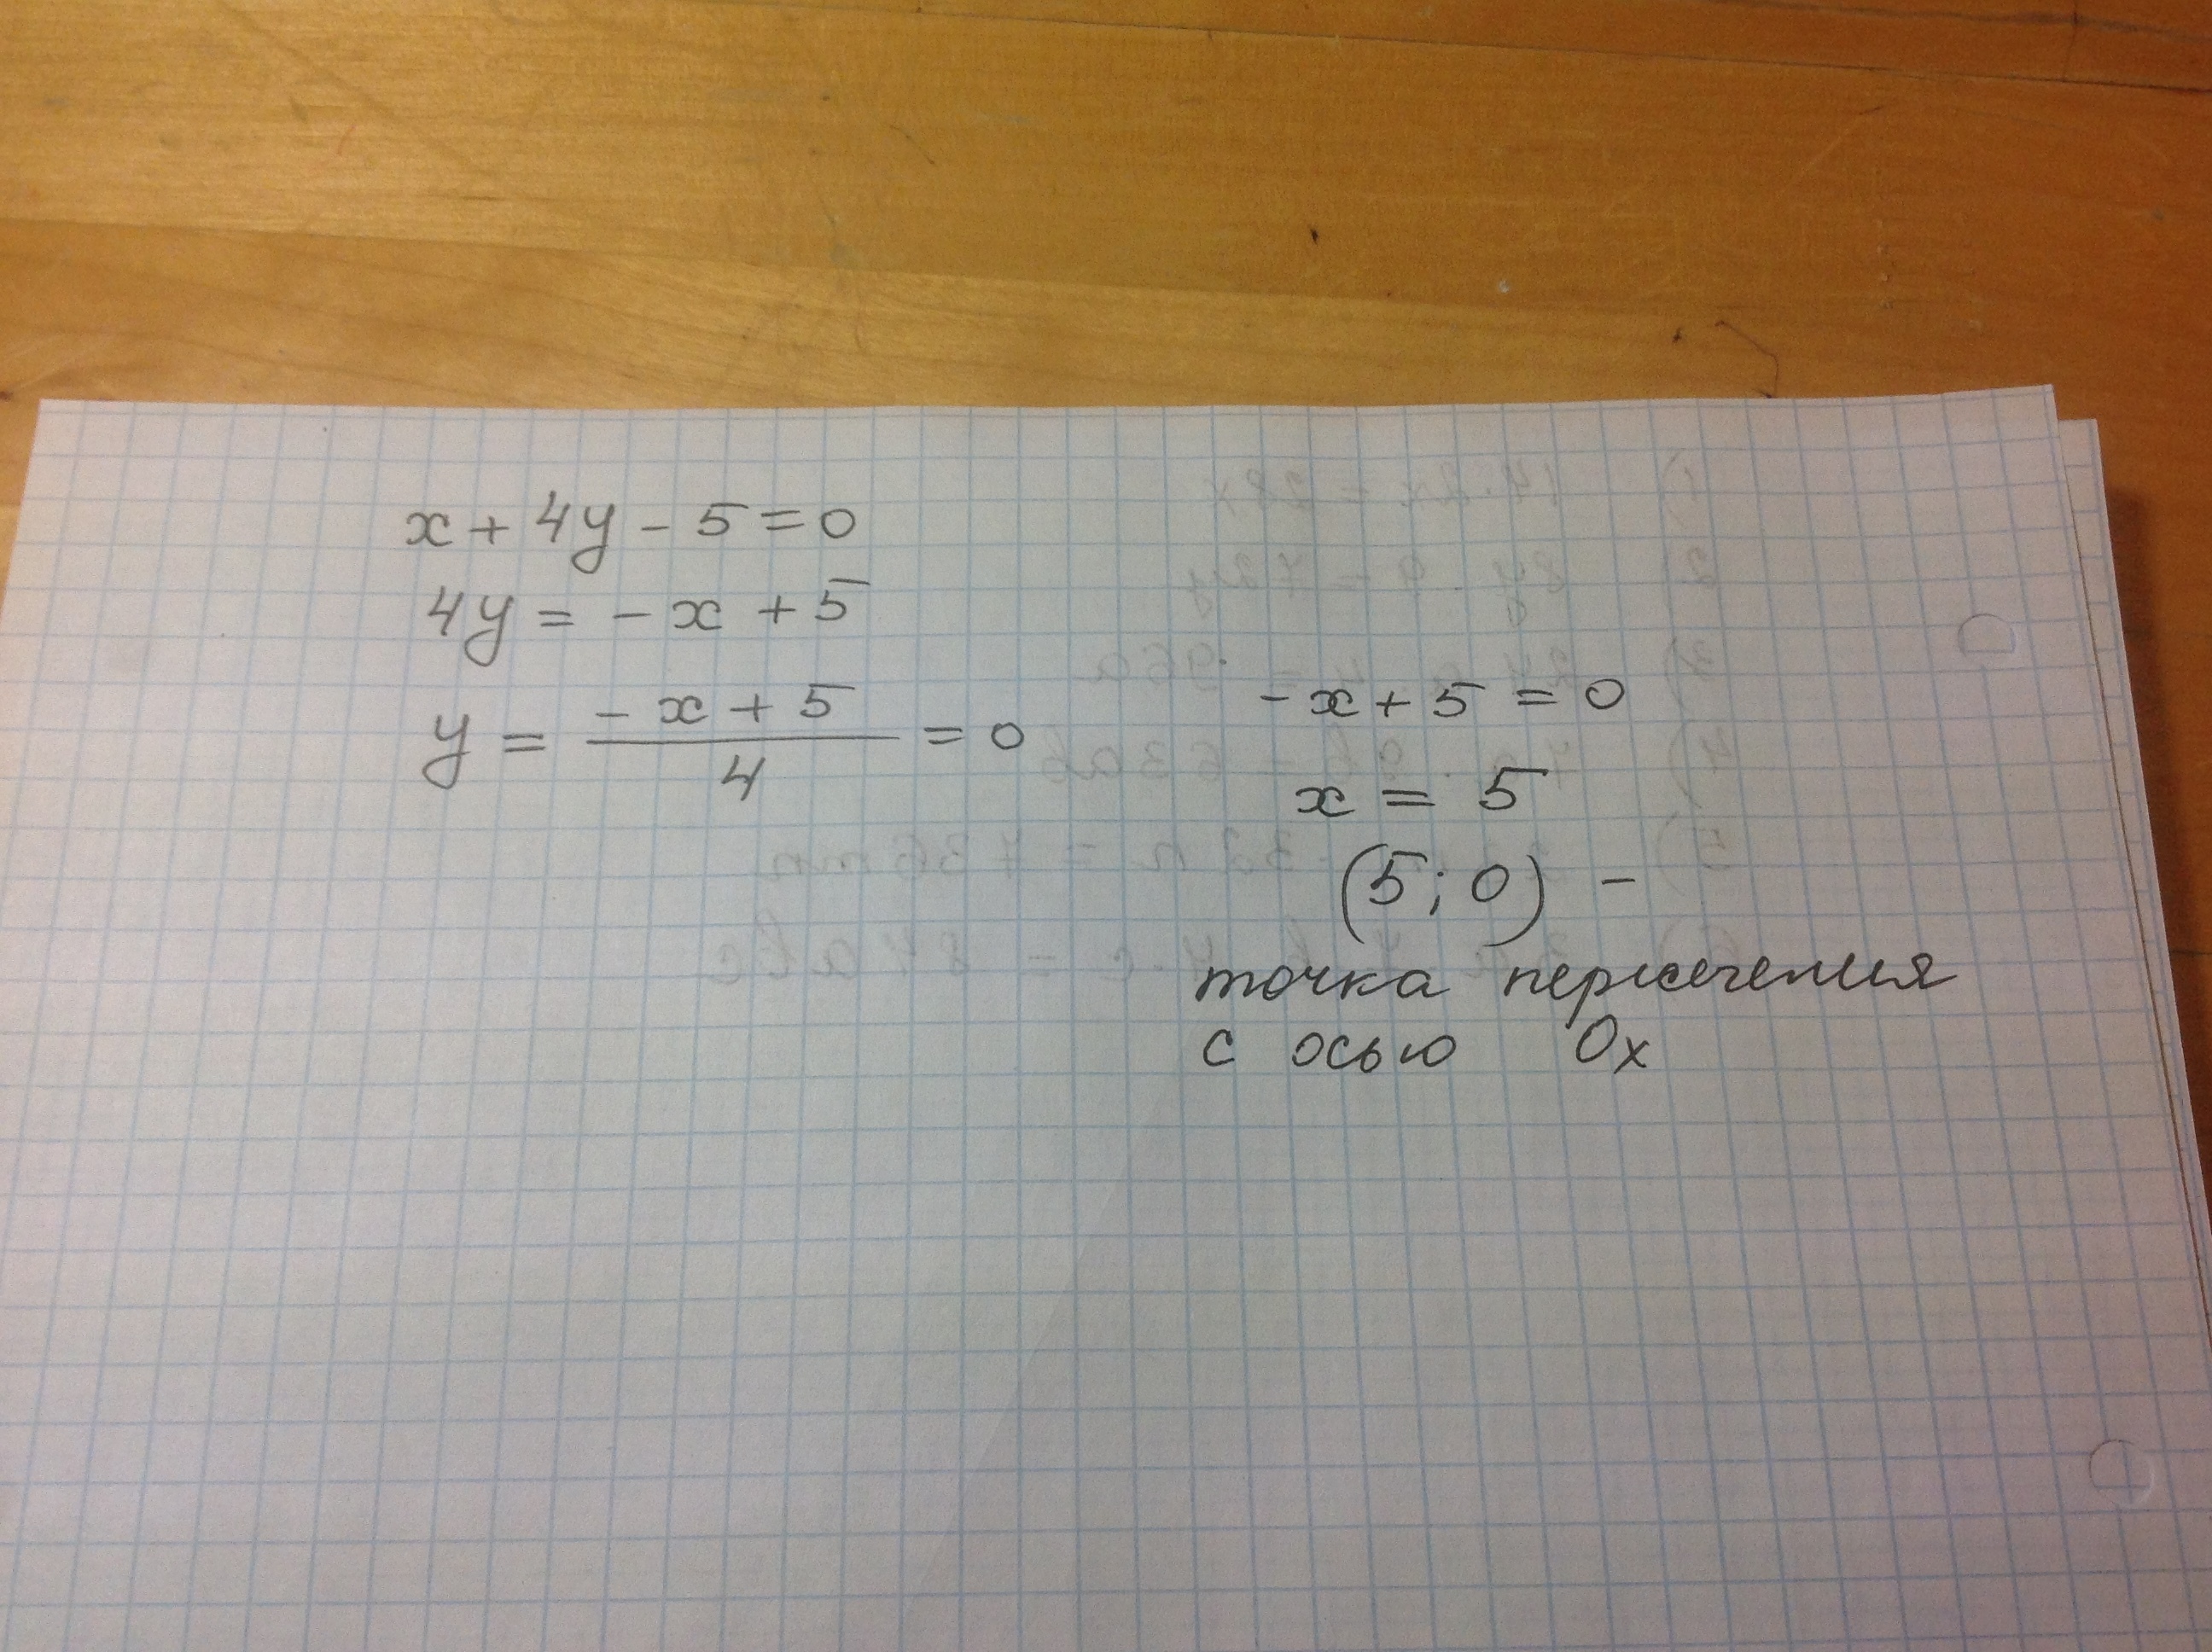 x + 4y - 5 = 0
4y = - x + 5
y = \frac{- x + 5}{4} = 0
- x + 5 = 0
x = 5
(5; 0) -
точка пересечения
с осью Ox